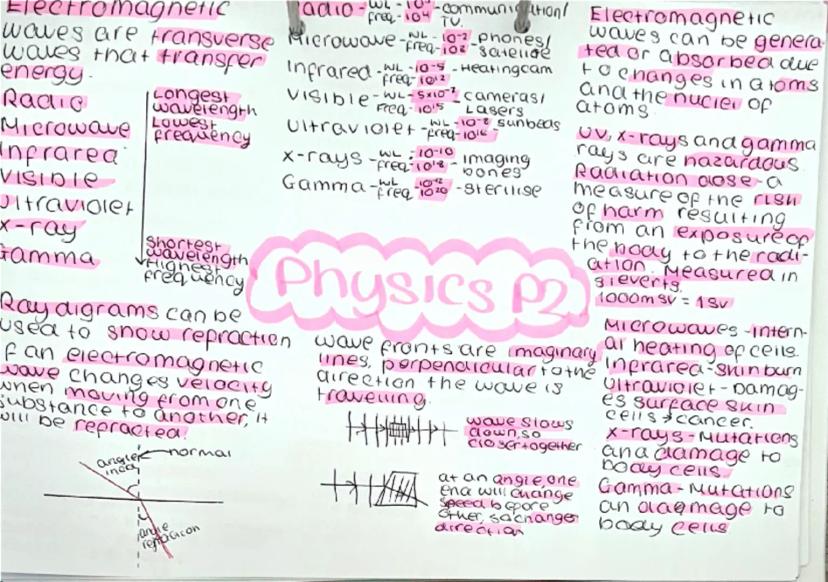 Electromagnetic
waves are transverse
waves that transfer
energy.
Radio
Microwave
Infrared
Visible
Ultraviolet
X-ray
Gamma
Longest
wavelength
Lowest
frequency
Shortest
wavelength
Highest
frequency
Ray digrams can be
used to show refraction
If an electromagnetic
wave changes velocity
when moving from one
substance to another, it
will be refracted.
normal
angle
inci
angle
refraction
Radio - WL - freq - 10⁴ - communication/
TV.
Microwave - WL - 10⁻² freq - 10⁸ - phones/
satelite
Infrared - WL - 10⁻⁵ freq - 10¹² - Heating cam
Visible - WL - 5x10⁻⁷ freq - 10¹⁵ - cameras/
Lasers
Ultraviolet - WL - 10⁻⁸ freq - 10¹⁶ - sunbeds
X-rays - WL - 10⁻¹⁰ freq - 10¹⁸ - imaging
bones
Gamma - WL - 10⁻¹² freq - 10²⁰ - sterilise
Physics P2
wave fronts are imaginary
lines, perpendicular to the
direction the wave is
travelling.
wave slows
down, so
closer together
at an angle, one
end will change
speed before
other, so changes
direction
Electromagnetic
waves can be genera-
ted or absorbed due
to changes in atoms
and the nuclei of
atoms.
UV, x-rays and gamma
rays are hazardous.
Radiation dose - a
measure of the risk
of harm resulting
from an exposure of
the body to the radi-
ation. Measured in
sieverts.
1000msv = 1sv
Microwaves - intern-
al heating of cells.
Infrared - skin burn
Ultraviolet - Damag-
es surface skin
cells → cancer.
X-rays - Mutations
and damage to
body cells
Gamma - Mutations
an damage to
body cells